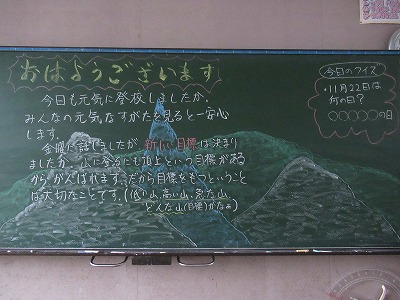 おはようございます
今日も元気に登校しましたか。
みんなの元気なすがたを見ると一安心
します。
金曜に話しましたが新しい目標は決まり
ましたか。山に登るにも頂上という目標がある
からがんばれます。だから目標をもつということ
は大切なことです。(低い山、高い山、急な山、
どんな山(目標)かなぁ)
今日のクイズ
・11月22日は
何の日?
○○○○○の日